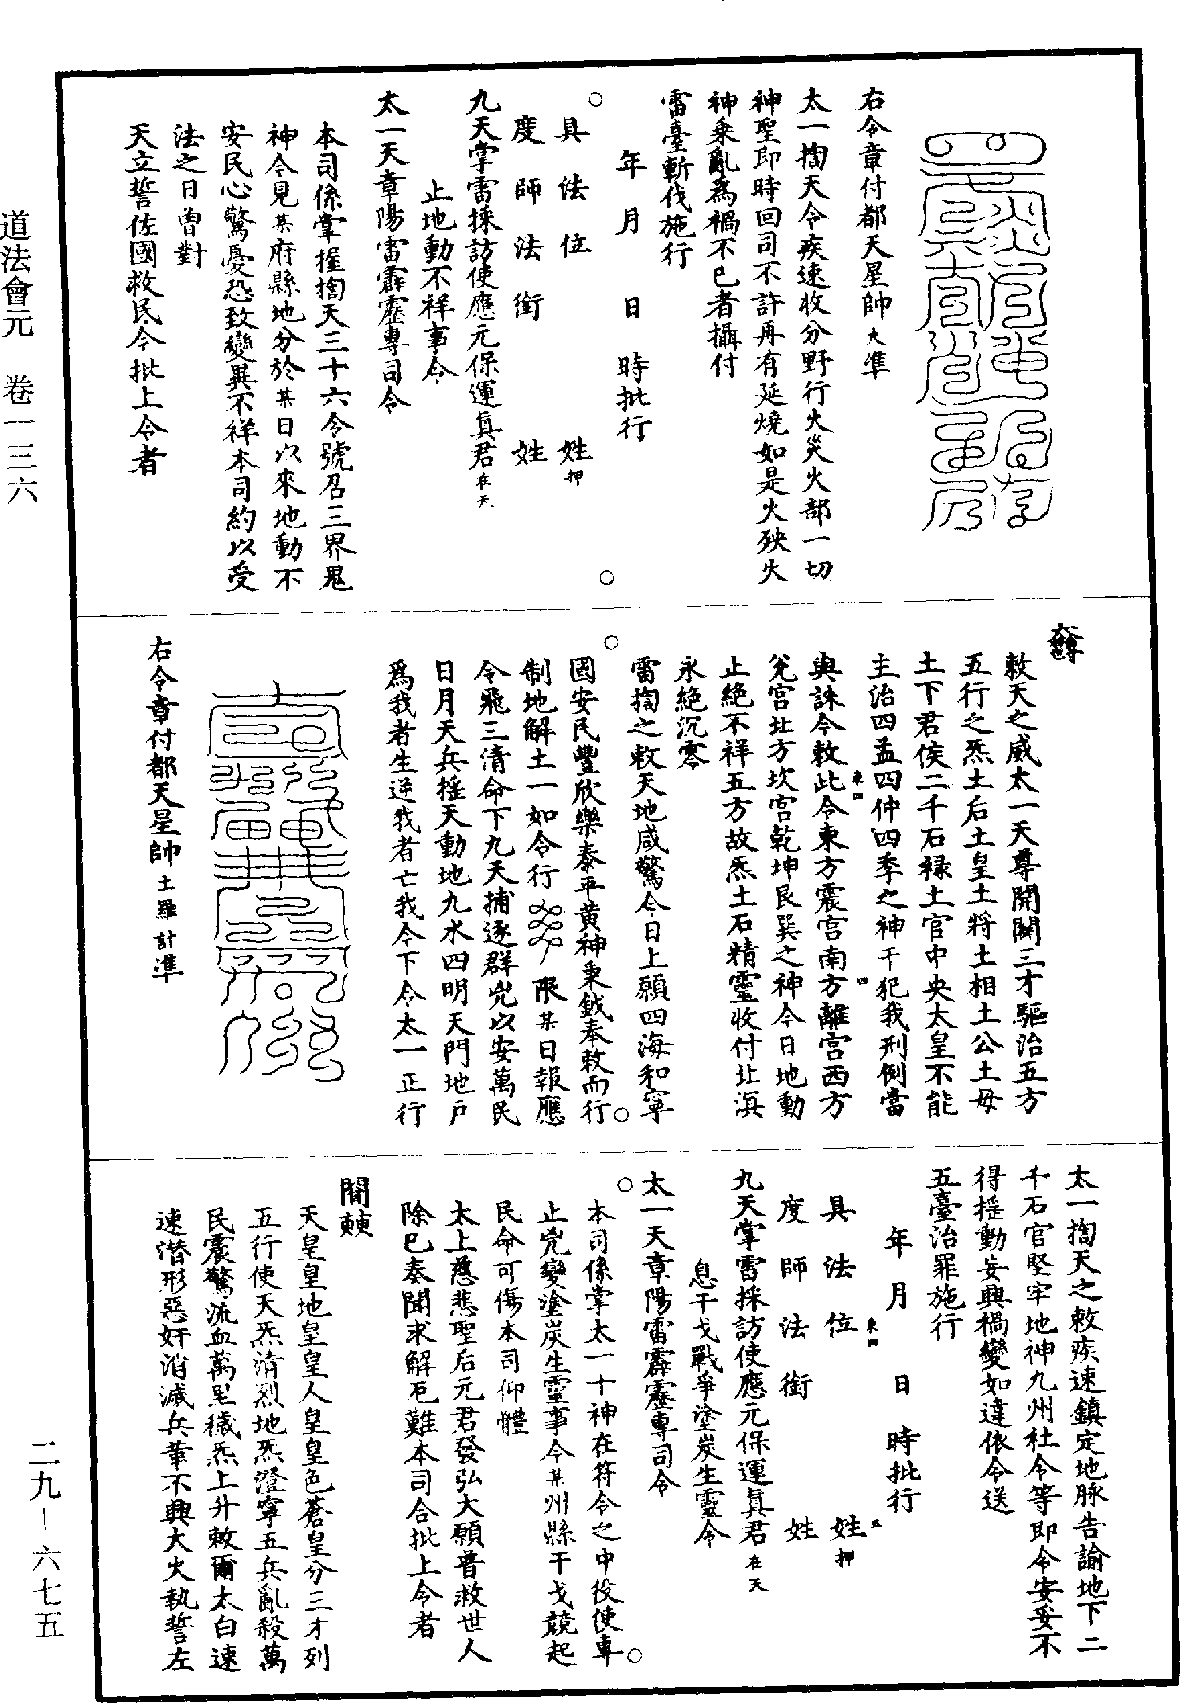 右令章付都天星帥火準
太一搊天令疾速收分野行火災火部一切
神聖即時回司不許再有延燒如是火殃火
神乘亂為禍不已者攝付
雷臺斬伐施行
年 月 日 時批行
具 法 位 姓押
度 師 法 銜 姓
九天掌雷採訪使應元保運真君在天
止地動不祥事令
太一天章陽雷霹靂專司令
本司係掌握搊天三十六令號召三界鬼
神令見某府縣地分於某日以來地動不
安民心驚憂恐致變異不祥本司約以受
法之日曾對
天立誓佐國救民今批上令者
敕天之威太一天尊開闢三才驅治五方
五行之炁土后土皇土將土相土公土母
土下君侯二千石祿土官中央太皇不能
主治四孟四仲四季之神干犯我刑例當
與誅今敕此令東方震宮南方離宮西方
兌宮北方坎宮乾坤艮巽之神今日地動
止絕不祥五方故炁土石精靈收付北溟
永絕沉零
雷搊之敕天地咸驚今日上願四海和寧
國安民豐欣樂泰平黃神秉鉞奉敕而行
制地解土一如令行 限某日報應
令飛三清命下九天捕逐群兇以安萬民
日月天兵搖天動地九水四明天門地戶
為我者生逆我者亡我令下令太一正行
右令章付都天星帥土羅計準
太一搊天之敕疾速鎮定地脉告諭地下二
千石官堅牢地神九州社令等即令安妥不
得搖動妄興禍變如違依令送
五臺治罪施行
年 月 日 時批行
具 法 位 姓押
度 師 法 銜 姓
九天掌雷採訪使應元保運真君在天
息干戈戰爭塗炭生靈令
太一天章陽雷霹靂專司令
本司係掌太一十神在符令之中役使專
止兇變塗炭生靈事今某州縣干戈競起
民命可傷本司仰體
太上慈悲聖后元君發弘大願普救世人
除已奏聞求解厄難本司合批上令者
天皇皇地皇皇人皇皇色蒼皇分三才列
五行使天炁清烈地炁澄寧五兵亂殺萬
民震驚流血萬里穢炁上升敕爾太白速
速潛形惡奸消滅兵革不興大火執誓左
道法會元 卷一三六
二九－六七五